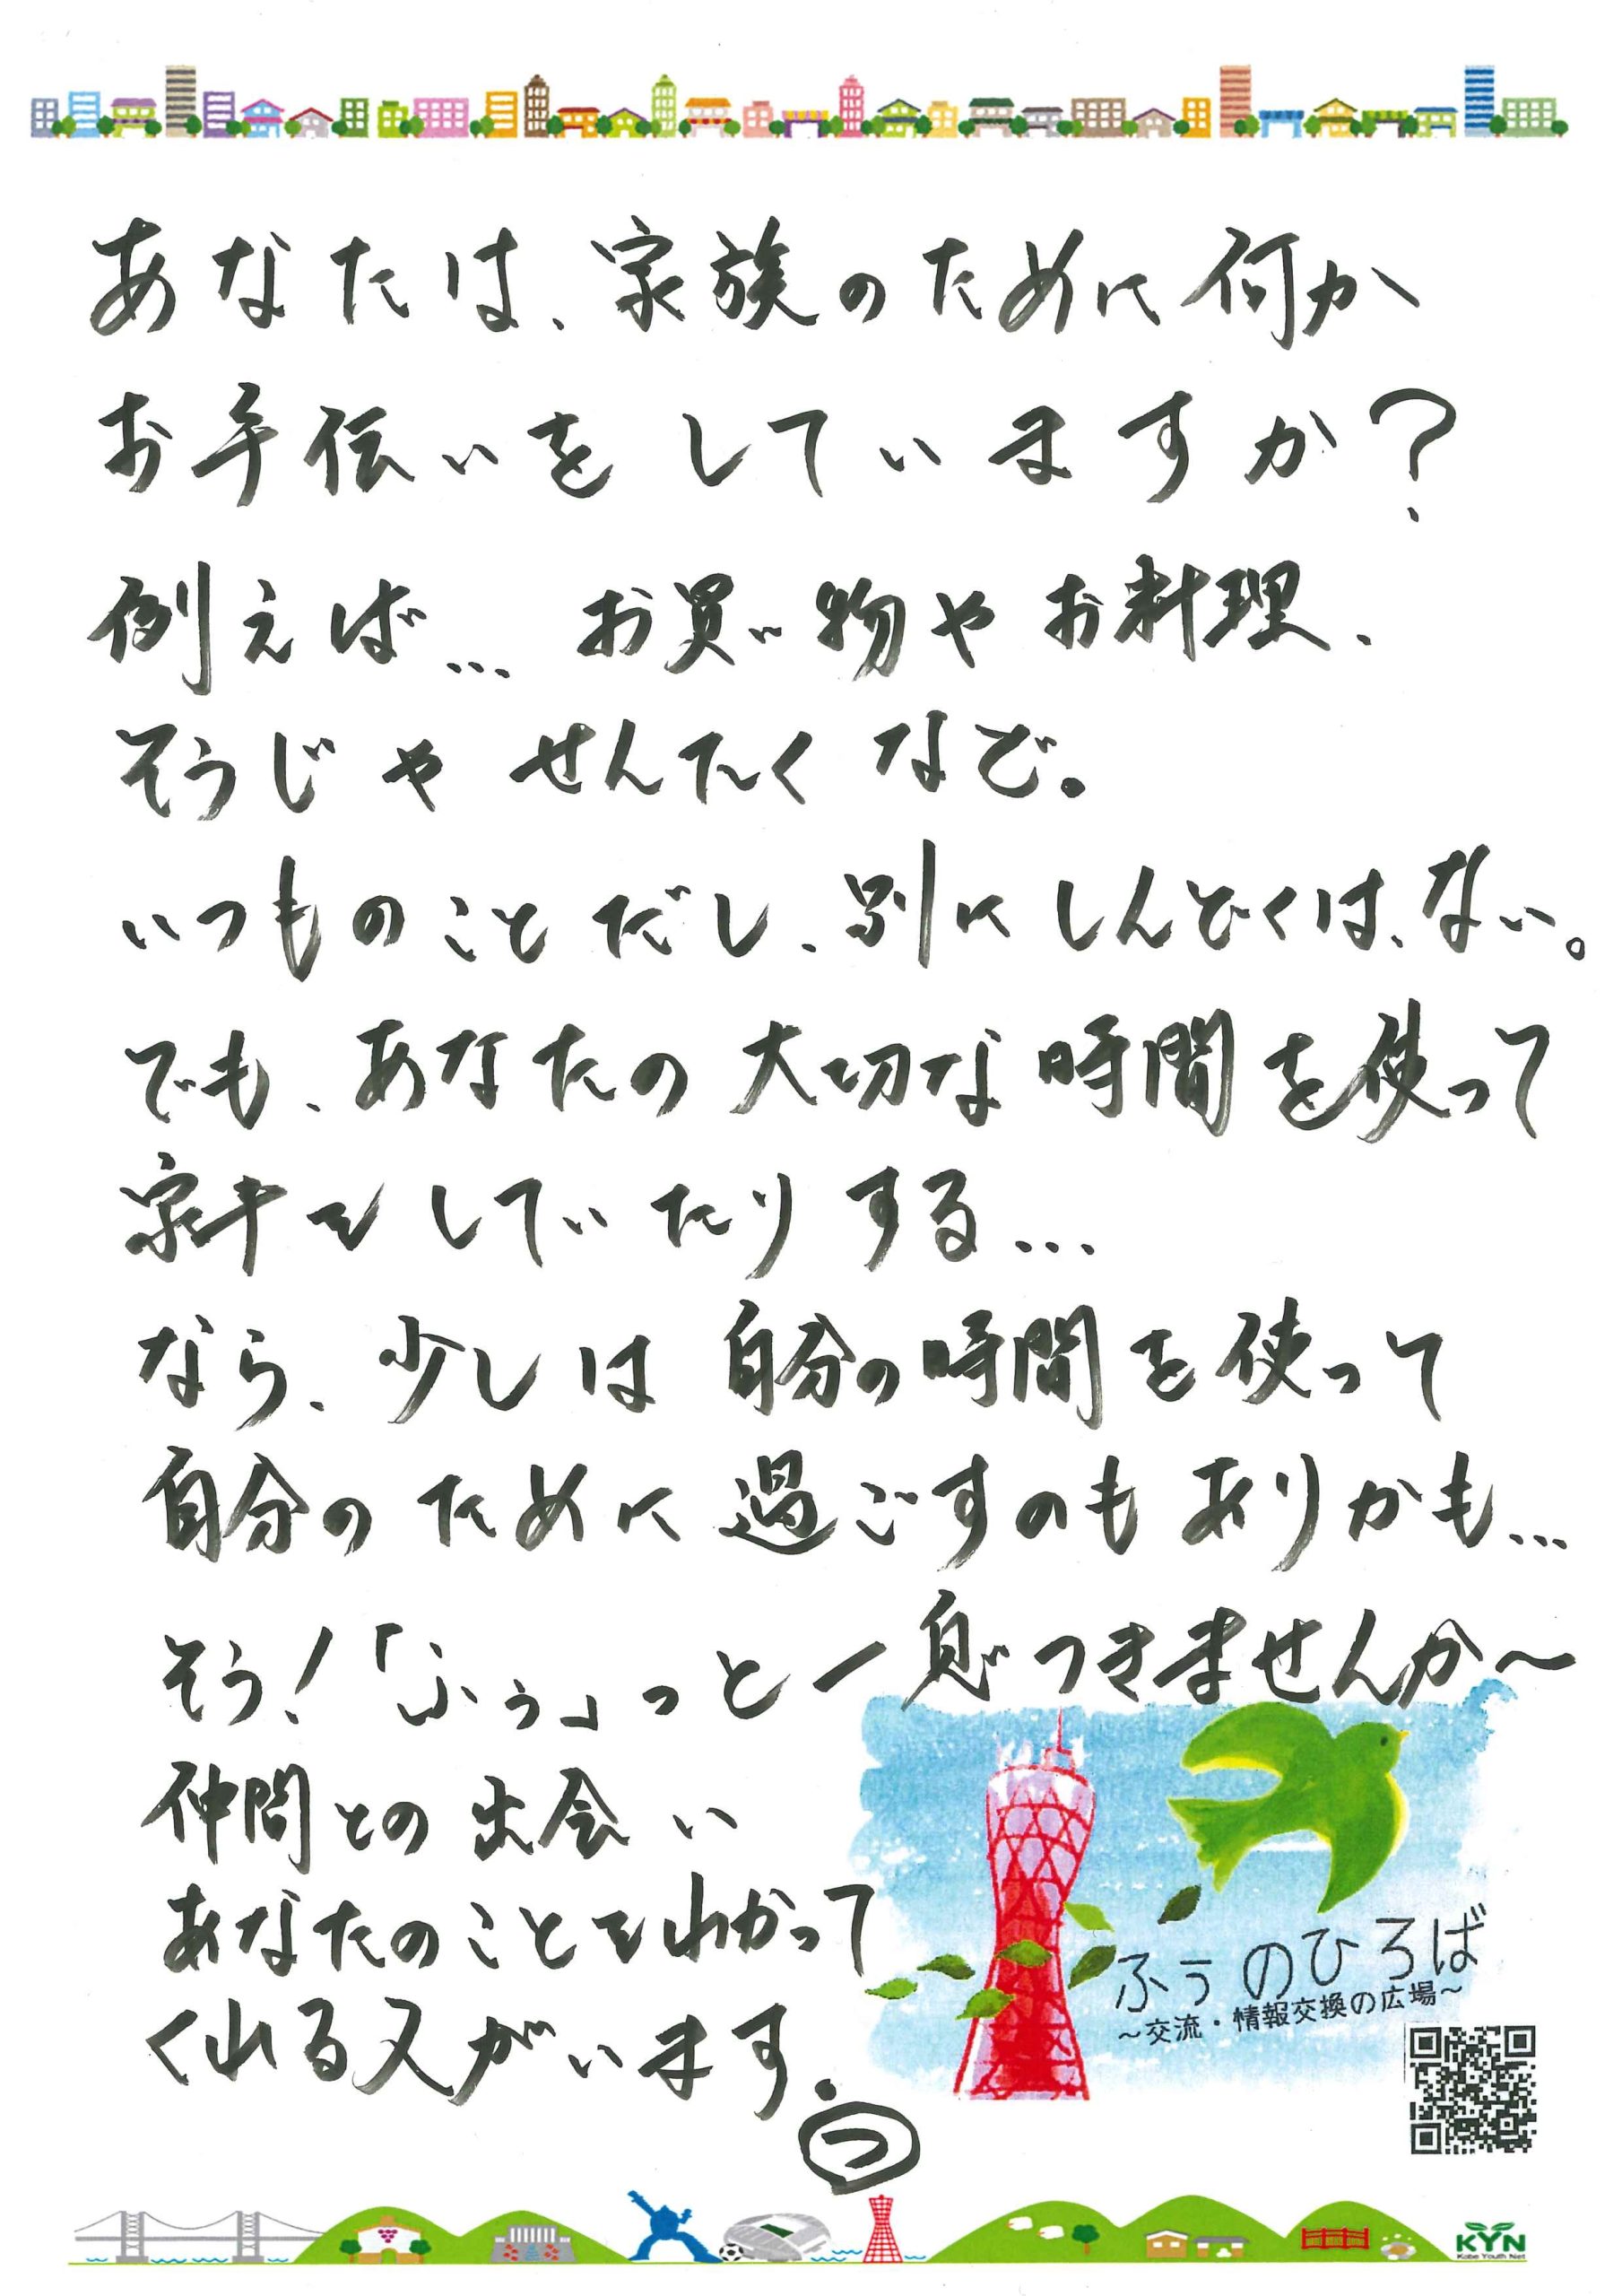 あなたは、家族のために何か
お手伝いをしていますか?
例えば…お買い物やお料理、
そうじやせんたくなど。
いつものことだし、別にしんどくは、ない。
でも、あなたの大切な時間を使って
家キをしていたりする…
なら、少しは自分の時間を使って
自分のために過ごすのもありかも…
そう!「ふぅ」っと一息つきませんか~
仲間との出会い
あなたのことをわかって
くれる人がいます。
つ
ふぅのひろば
~交流・情報交換の広場~
KYN
Kobe Youth Net